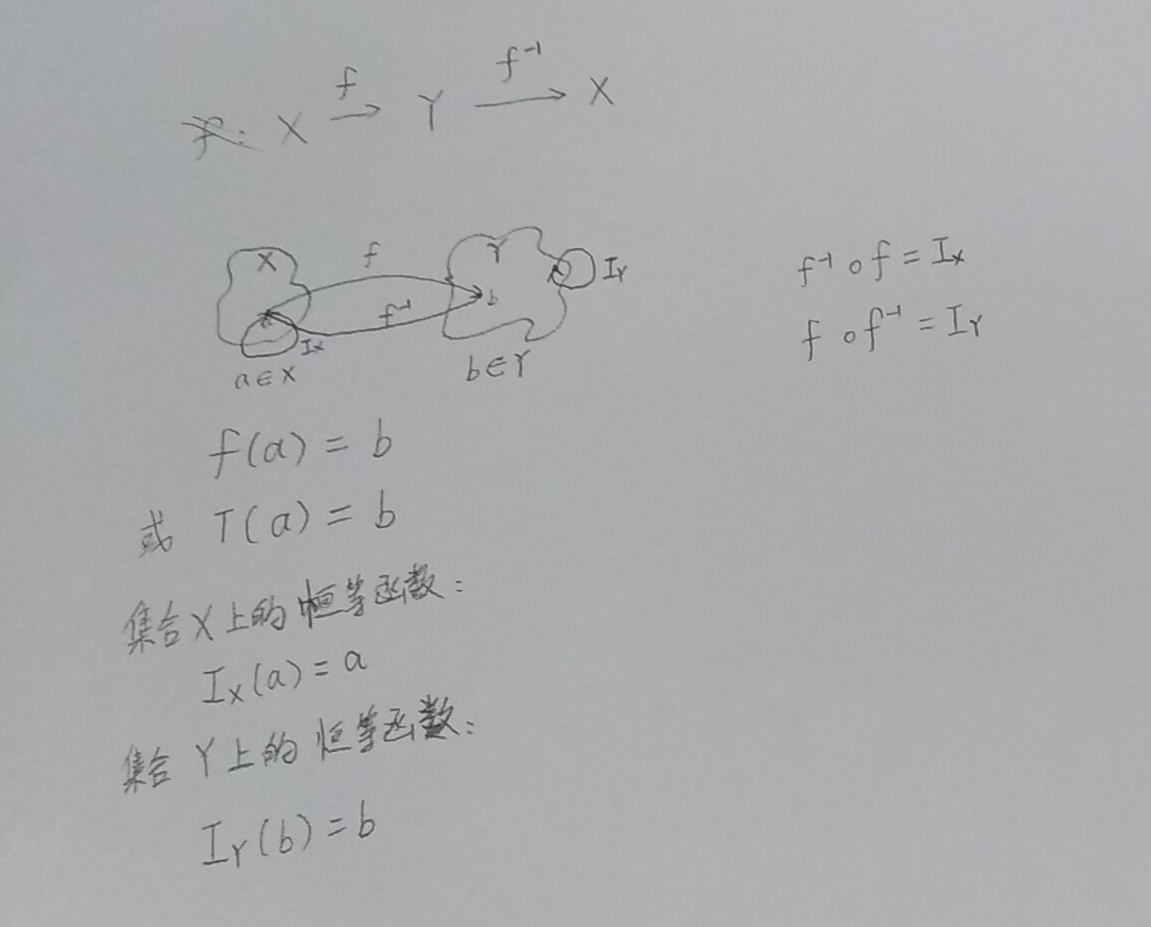 f
f⁻¹
X → Y → X
X
f
Y
I_Y
f⁻¹
b
I_X
a∈X
b∈Y
f⁻¹∘f = I_X
f∘f⁻¹ = I_Y
f(a) = b
或 T(a) = b
集合X上的恒等函数:
I_X(a) = a
集合Y上的恒等函数:
I_Y(b) = b